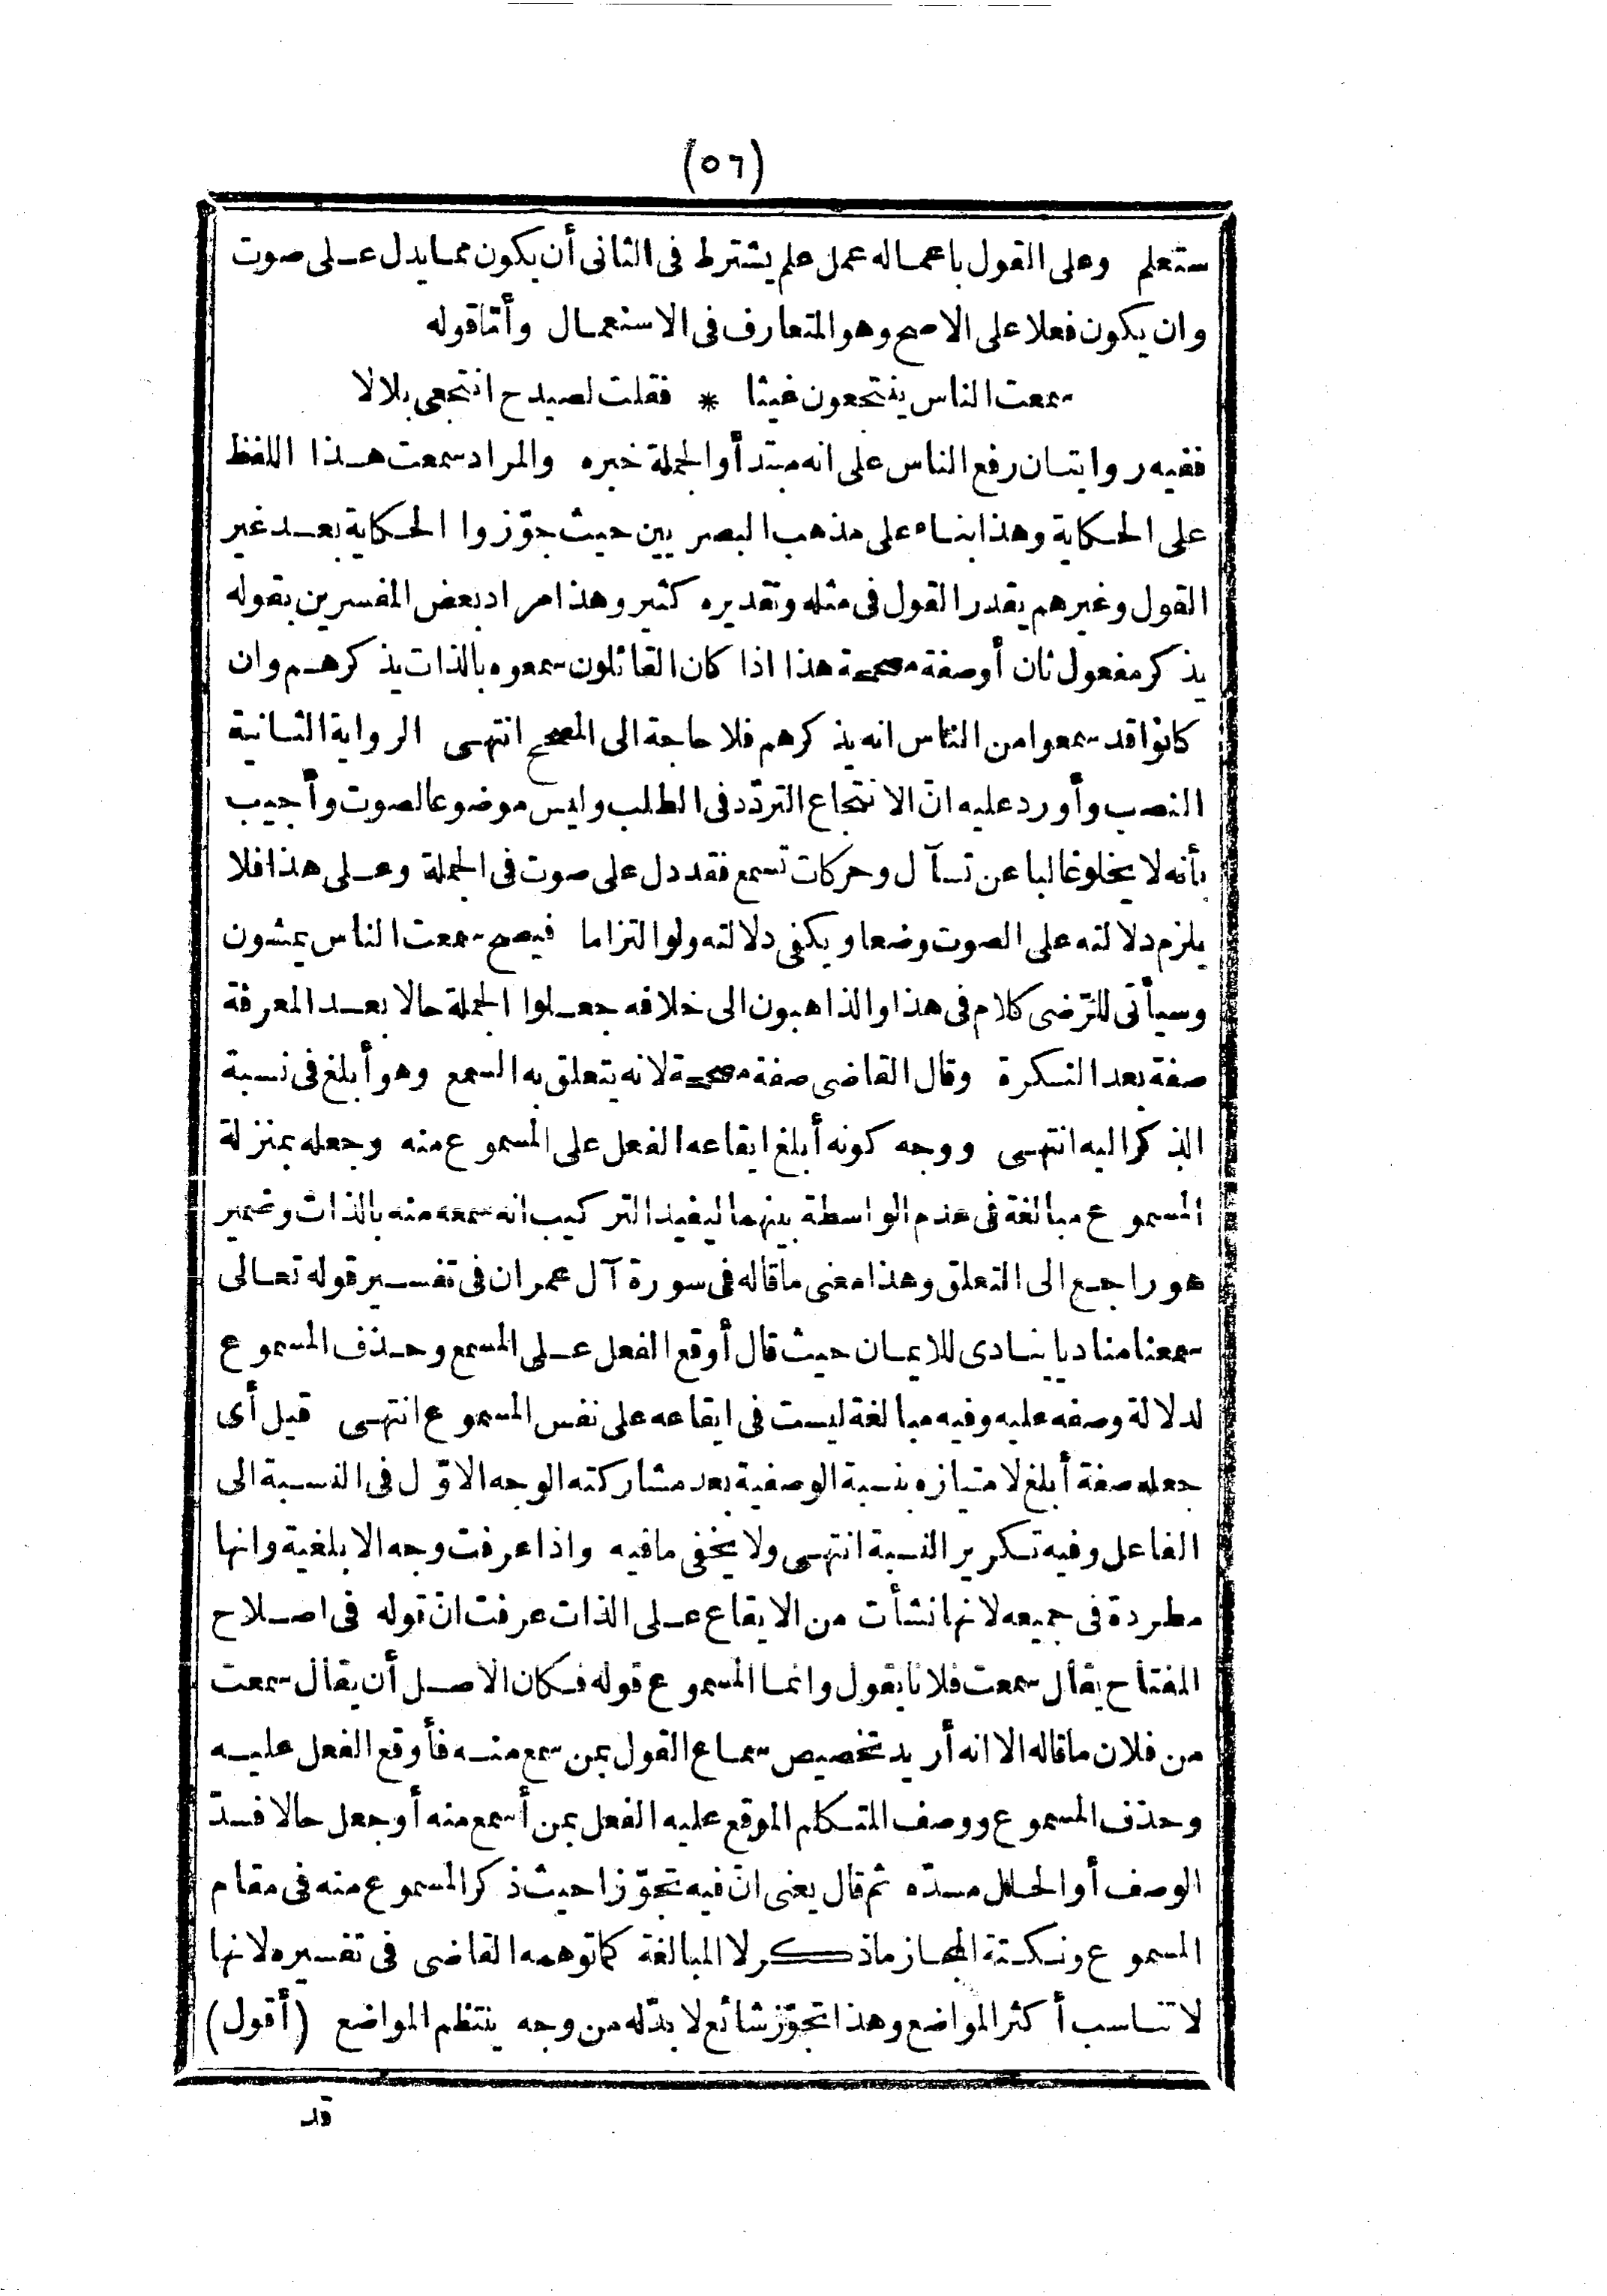 (٥٦)
ستعلم وعلى القول باعماله عمل علم يشترط فى الثانى أن يكون مما يدل على صوت
وان يكون فعلا على الاصح وهو المتعارف فى الاستعمال وأمّا قوله
سمعت الناس ينتجعون غيثا * فقلت لصيدح انتجعى بلالا
ففيه روايتان رفع الناس على انه مبتدأ والجملة خبره والمراد سمعت هذا اللفظ
على الحكاية وهذا بناء على مذهب البصريين حيث جوّزوا الحكاية بعد غير
القول وغيرهم يقدر القول فى مثله وتقديره كثير وهذا مراد بعض المفسرين بقوله
يذكر مفعول ثان أو صفة مصححة هذا اذا كان القائلون سمعوه بالذات يذكرهم وان
كانوا قد سمعوا من الناس انه يذكرهم فلا حاجة الى المصحح انتهى الرواية الثانية
النصب وأورد عليه انّ الانتجاع التردّد فى الطلب وليس موضوعا لصوت وأجيب
بأنه لا يخلو غالبا عن تسآل وحركات تسمع فقد دل على صوت فى الجملة وعلى هذا فلا
يلزم دلالته على الصوت وضعا ويكفى دلالته ولو التزاما فيصح سمعت الناس يمشون
وسيأتى للرّضى كلام فى هذا والذاهبون الى خلافه جعلوا الجملة حالا بعد المعرفة
صفة بعد النكرة وقال القاضى صفة مصححة لانه يتعلق به السمع وهو أبلغ فى نسبة
الذكر اليه انتهى ووجه كونه أبلغ ايقاعه الفعل على المسموع منه وجعله بمنزلة
المسموع مبالغة فى عدم الواسطة بينهما ليفيد التركيب انه سمعه منه بالذات وضمير
هو راجع الى التعلق وهذا معنى ما قاله فى سورة آل عمران فى تفسير قوله تعالى
سمعنا مناديا ينادى للايمان حيث قال أوقع الفعل على المسمع وحذف المسموع
لدلالة وصفه عليه وفيه مبالغة ليست فى ايقاعه على نفس المسموع انتهى قيل أى
جعله صفة أبلغ لامتيازه بنسبة الوصفية بعد مشاركته الوجه الاوّل فى النسبة الى
الفاعل وفيه تكرير النسبة انتهى ولا يخفى ما فيه واذا عرفت وجه الابلغية وانها
مطردة فى جميعه لانها نشأت من الايقاع على الذات عرفت انّ قوله فى اصلاح
المفتاح يقال سمعت فلانا يقول وانما المسموع قوله فكان الاصل أن يقال سمعت
من فلان ما قاله الا انه أريد تخصيص سماع القول بمن سمع منه فأوقع الفعل عليه
وحذف المسموع ووصف المتكلم الموقع عليه الفعل بمن أسمع منه أو جعل حالا فسدّ
الوصف أو الحال مسدّه ثم قال يعنى انّ فيه تجوّزا حيث ذكر المسموع منه فى مقام
المسموع ونكتة المجاز ما ذكر لا المبالغة كما توهمه القاضى فى تفسيره لانها
لا تناسب أكثر المواضع وهذا تجوّز شائع لا بدّ له من وجه ينتظم المواضع (أقول)
قد